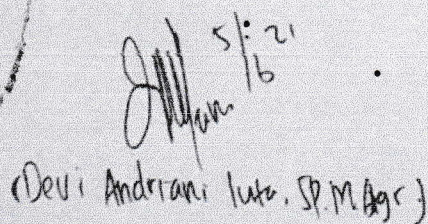 5/6 21
(Devi Andriani luta. SP. M.Agr.)